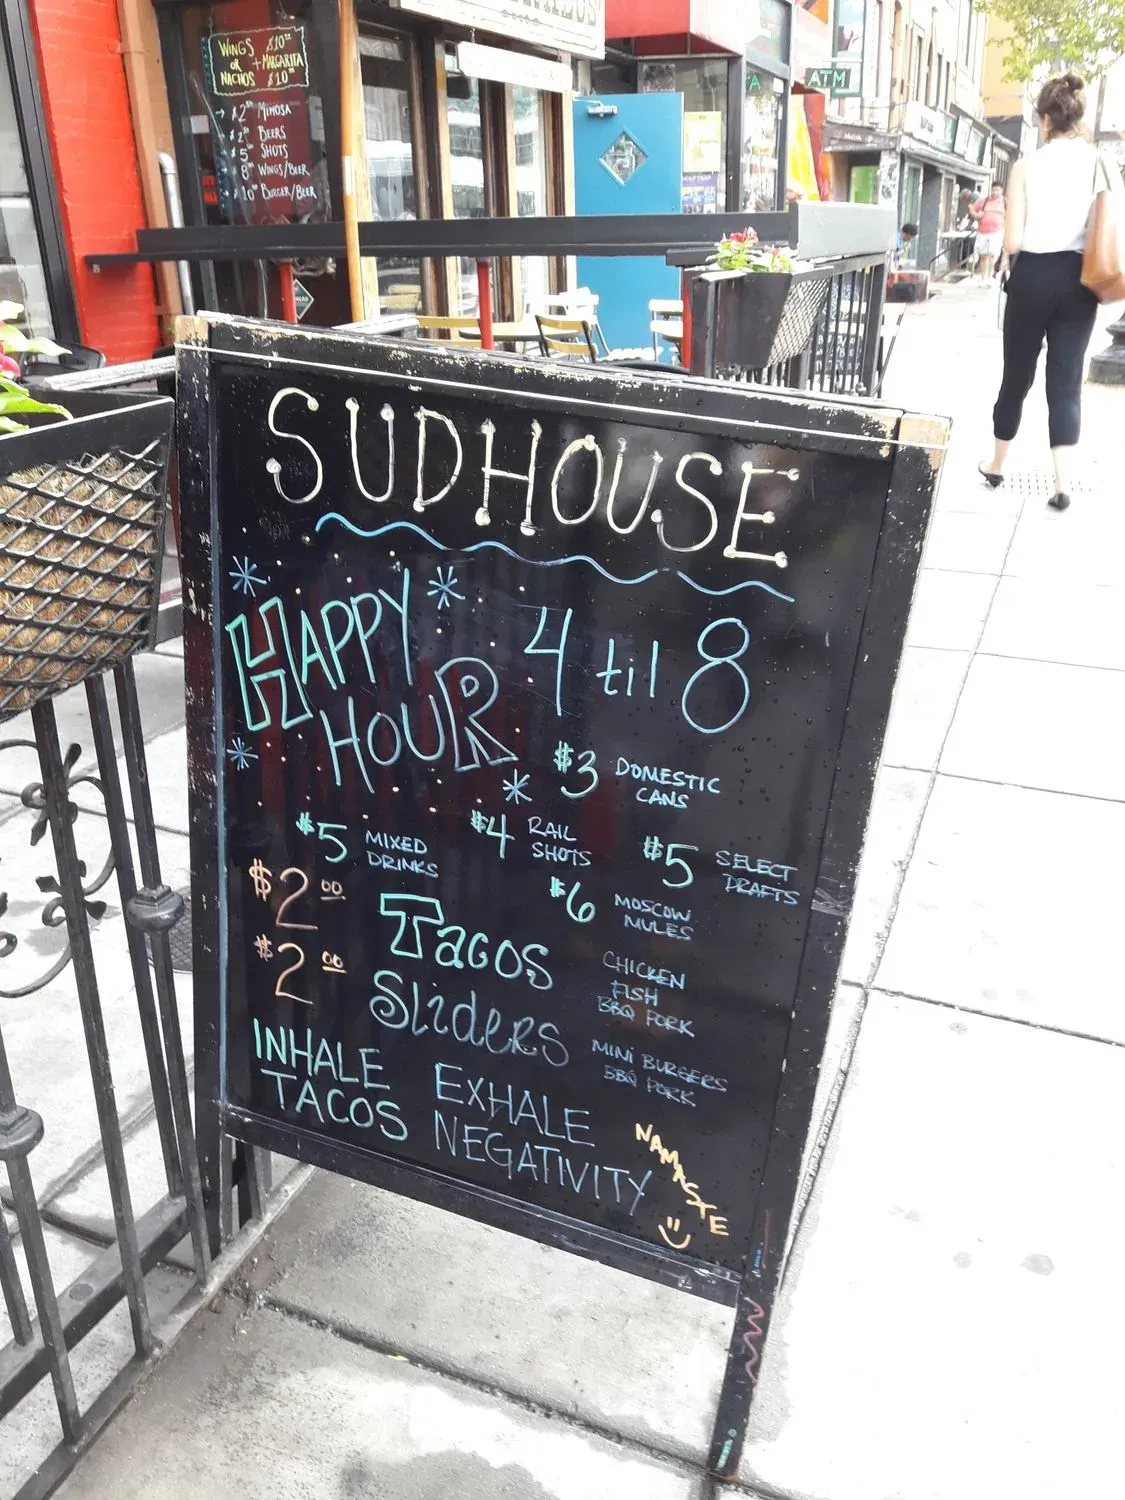 WINGS $10
OR + MARGARITA
NACHOS $10
$2 MIMOSA
BEERS
$5 SHOTS
8 WINGS/BEER
10 BURGER/BEER
ATM
SUDHOUSE
HAPPY
HOUR
4 til 8
$3 DOMESTIC
CANS
$5 MIXED
DRINKS
$4 RAIL
SHOTS
$5 SELECT
DRAFTS
$6 MOSCOW
MULES
$2.00 TACOS
CHICKEN
FISH
BBQ PORK
$2.00 SLIDERS
MINI BURGERS
BBQ PORK
INHALE
TACOS
EXHALE
NEGATIVITY
NAMASTE